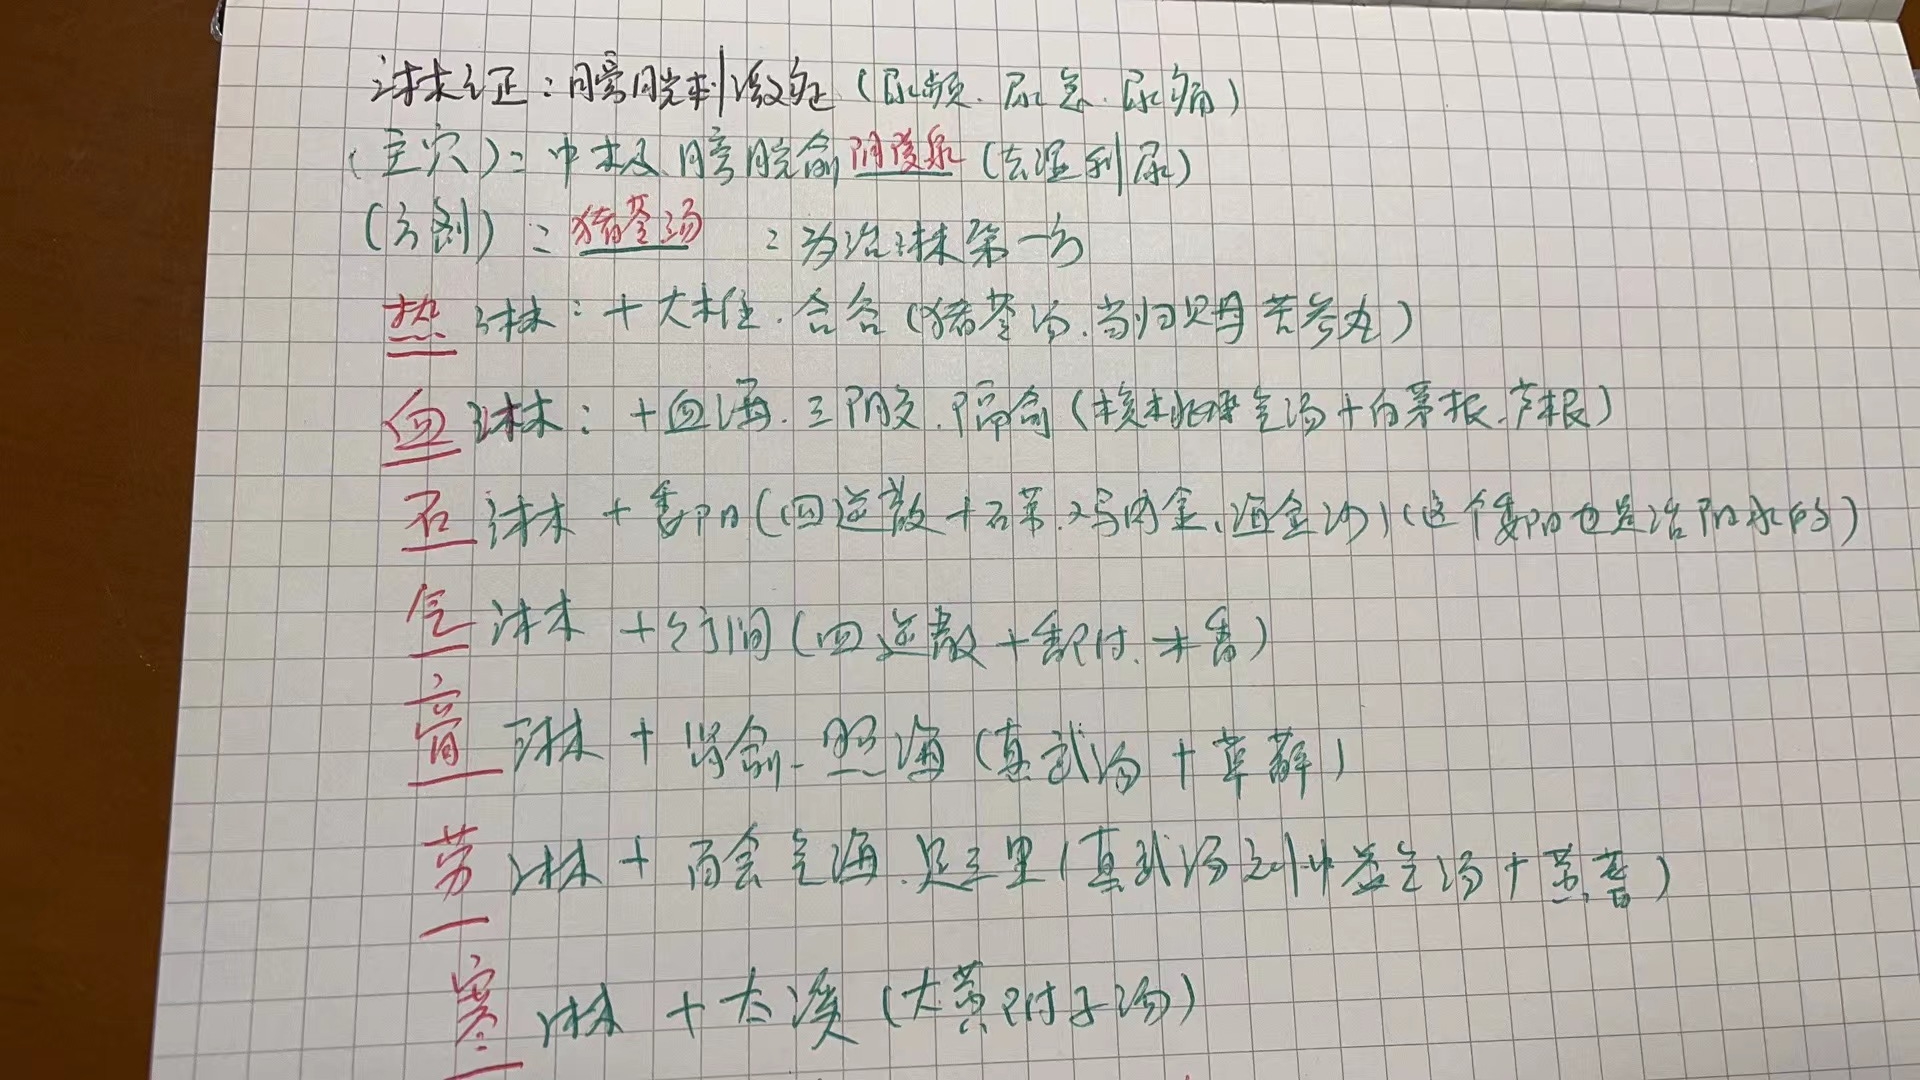 淋证:膀胱刺激征(尿频、尿急、尿痛)
(主穴):中极、膀胱俞 阴陵泉(去湿利尿)
(方剂):猪苓汤 :为治淋第一方
热淋:+大椎、合谷(猪苓汤、当归贝母苦参丸)
血淋:+血海、三阴交、膈俞(核桃承气汤+白茅根、芦根)
石淋+委阳(四逆散+石苇、鸡内金、海金沙)(这个委阳也是治阳水的)
气淋+行间(四逆散+香附、木香)
膏淋+肾俞、照海(真武汤+萆薢)
劳淋+百会 气海、足三里(真武汤 补中益气汤+黄耆)
寒淋+太溪(大黄附子汤)